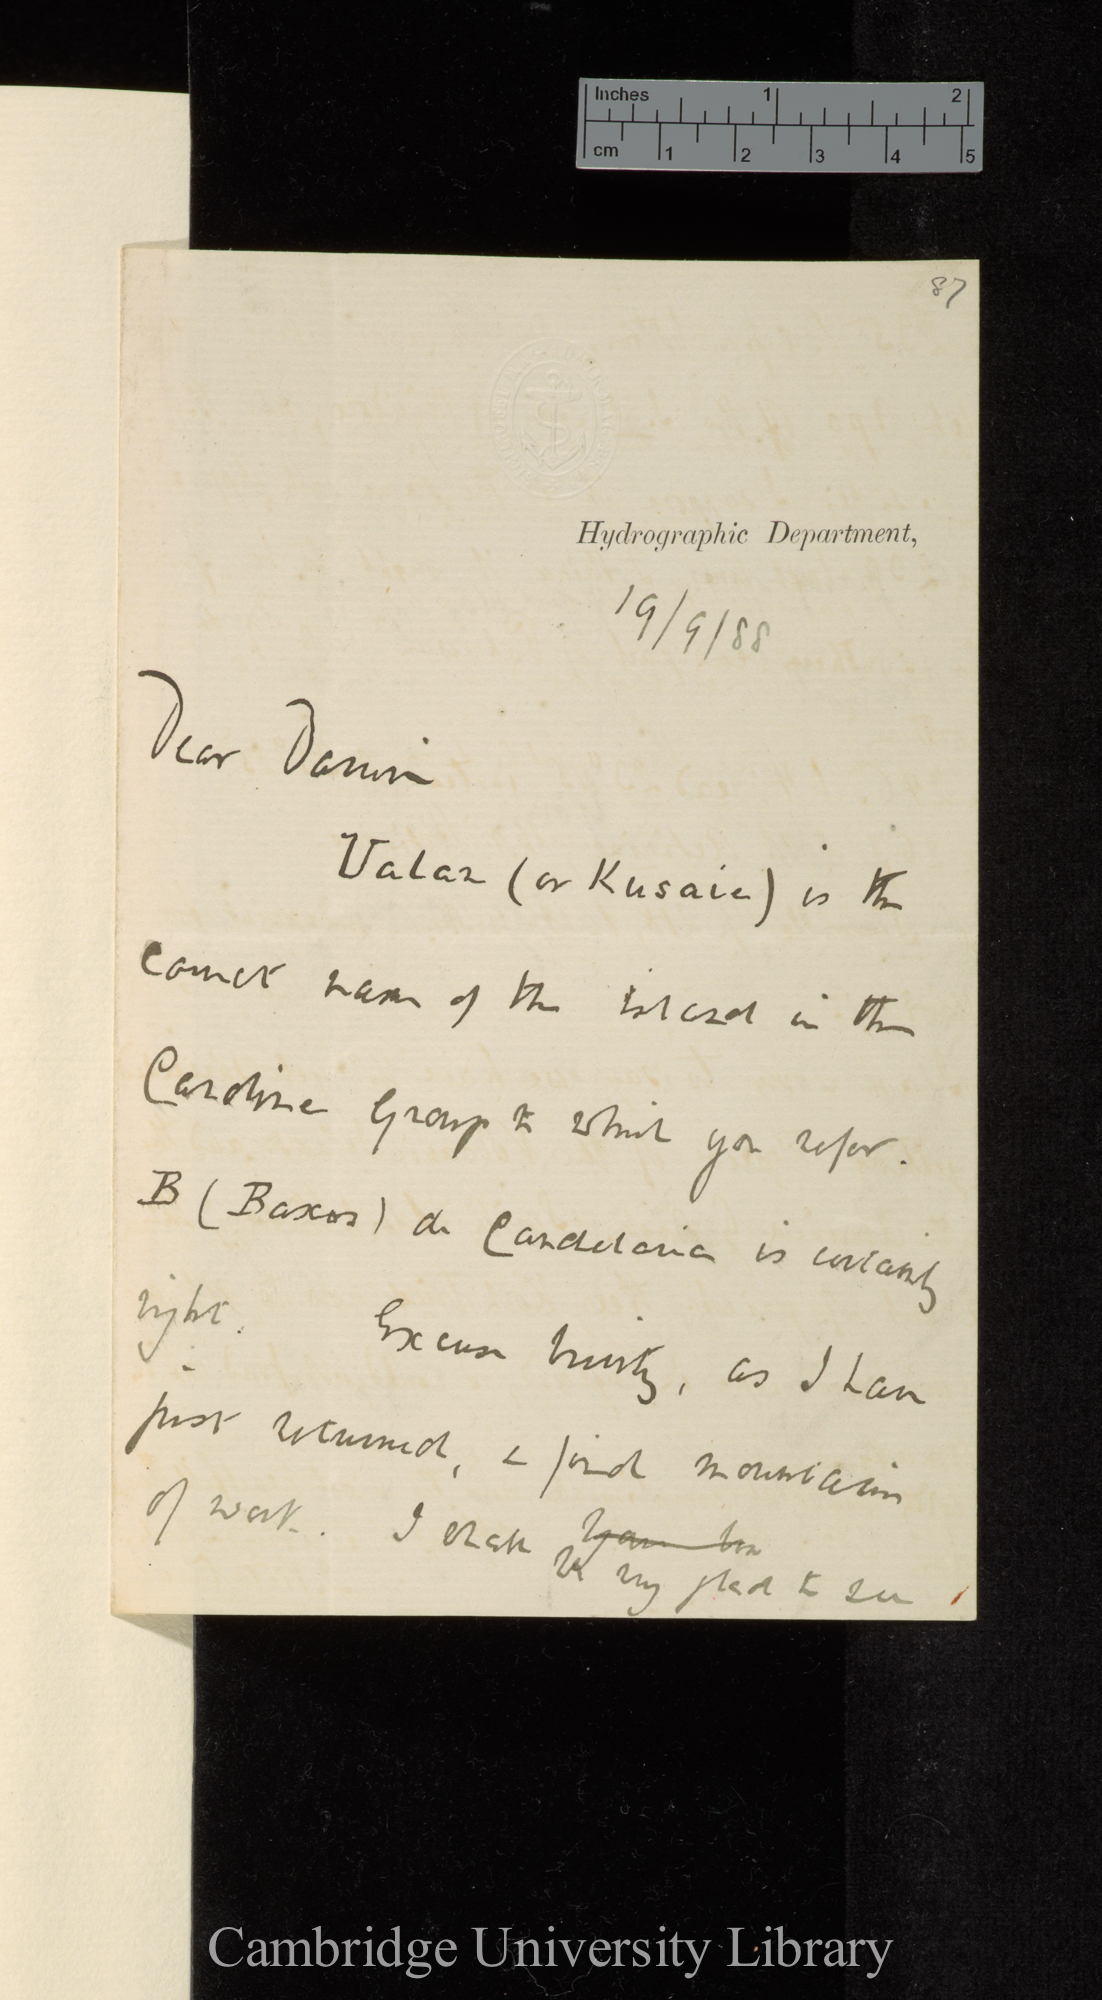 Inches 1 2
cm 1 2 3 4 5
87
Hydrographic Department,
19/9/88
Dear Darwin
Ualan (or Kusaie) is the
correct name of the island in the
Caroline Group to which you refer.
B (Baxos) de Candelaria is certainly
right. Excuse brevity, as I have
just returned, & find mountains
of work. I shall
be very glad to see
Cambridge University Library